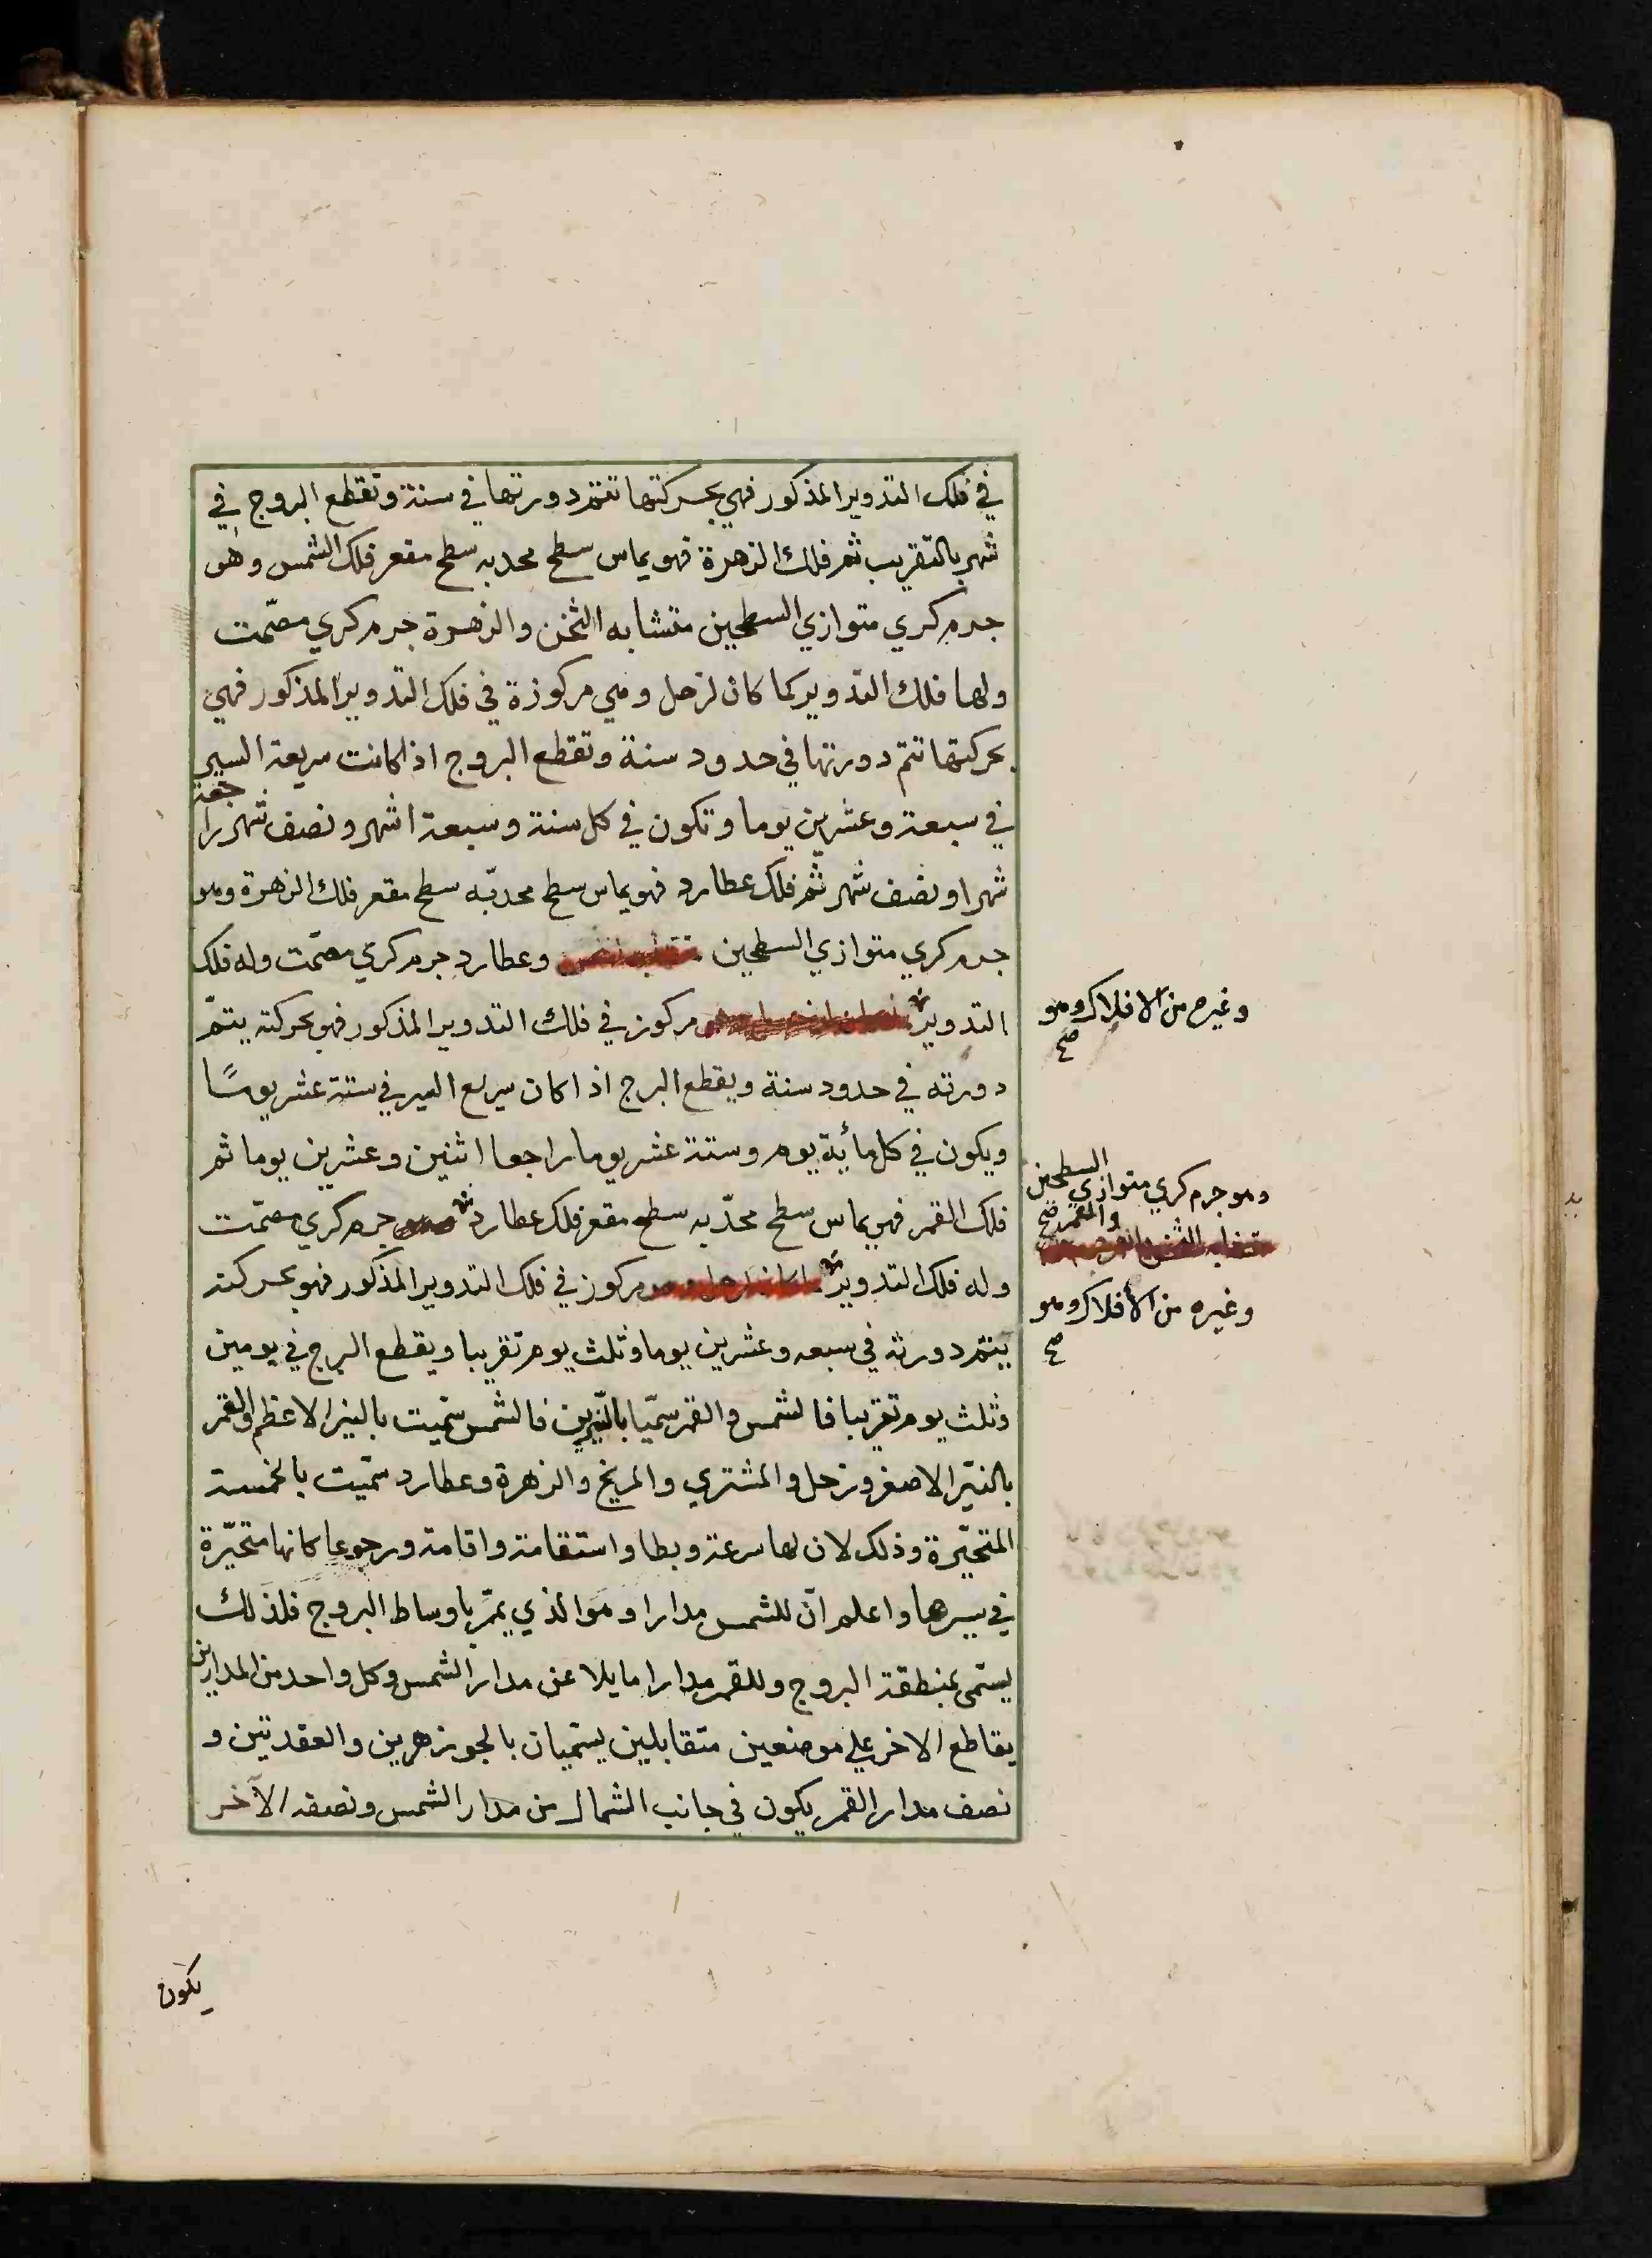 في فلك التدوير المذكور فهي بحركتها تتم دورتها في سنة وتقطع البروج في
شهر بالتقريب ثم فلك الزهرة فهو يماس سطح محدبه سطح مقعر فلك الشمس وهو
جرم كري متوازي السطحين متشابه الثخن والزهرة جرم كري مصمّت
ولها فلك التدوير كما كان لزحل وهي مركوزة في فلك التدوير المذكور فهي
بحركتها تتم دورتها في حدود سنة وتقطع البروج اذا كانت سريعة السير
في سبعة وعشرين يوما وتكون في كل سنة وسبعة اشهر ونصف شهر راجعة
شهرا ونصف شهر ثم فلك عطارد فهو يماس سطح محدبّه سطح مقعر فلك الزهرة وهو
جرم كري متوازي السطحين وعطارد جرم كري مصمّت وله فلك
التدوير مركوز في فلك التدوير المذكور فهو بحركته يتمّ
وغيره من الافلاك وهو
صح
دورته في حدود سنة ويقطع البرج اذا كان سريع السير في ستة عشر يومًا
ويكون في كل مأية يوم وستة عشر يوما راجعا اثنين وعشرين يوما ثم
فلك القمر فهو يماس سطح محدّبه سطح مقعر فلك عطارد جرم كري مصمّت
وهو جرم كري متوازي السطحين
والقمر صح
وله فلك التدوير مركوز في فلك التدوير المذكور فهو بحركته
وغيره من الأفلاك وهو
صح
يتمّ دورته في سبعه وعشرين يوما وثلث يوم تقريبا ويقطع البرج في يومين
وثلث يوم تقريبا فالشمس والقمر سمّيا بالنّيرين فالشمس سمّيت بالنير الاعظم والقمر
بالنيّر الاصغر وزحل والمشتري والمريخ والزهرة وعطارد سمّيت بالخمسة
المتحيّرة وذلك لان لها سرعة وبطا واستقامة واقامة ورجوعا كانها متحيّرة
في سيرها واعلم انّ للشمس مدارا وهو الذي يمّر باوساط البروج فلذلك
يسمّى بمنطقة البروج وللقمر مدارا مايلا عن مدار الشمس وكل واحد من المدارين
يقاطع الاخر على موضعين متقابلين يسمّيان بالجوزهرين والعقدتين و
نصف مدار القمر يكون في جانب الشمال من مدار الشمس ونصفه الآخر
يكون